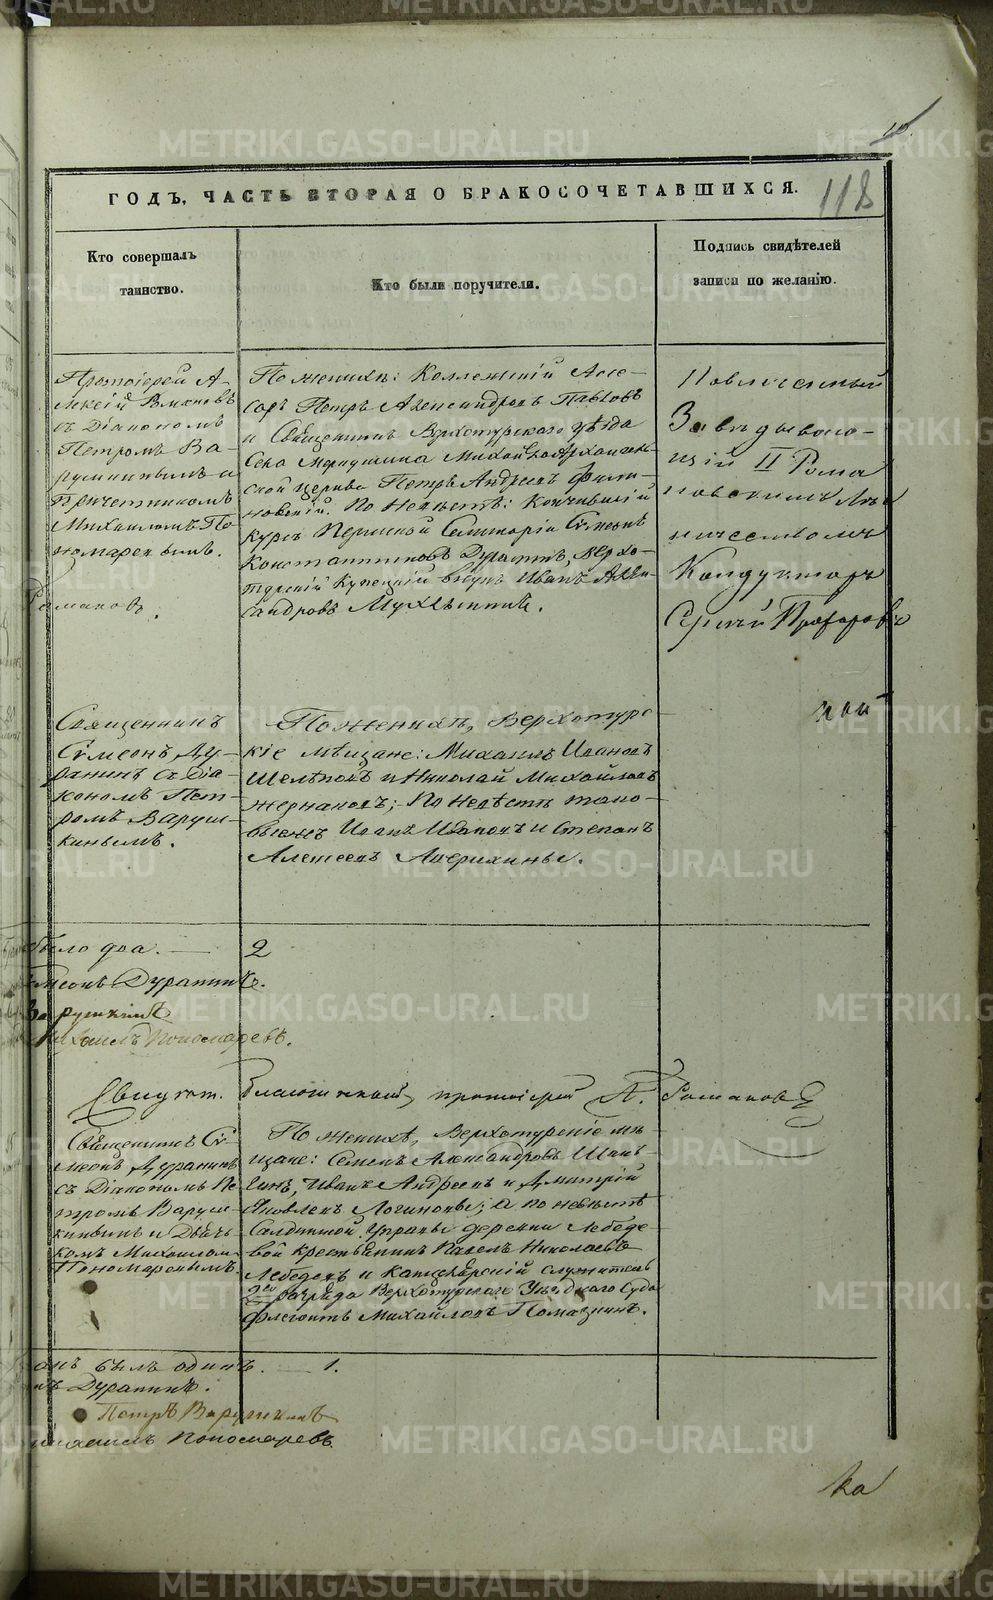 118
ГОДЪ, ЧАСТЬ ВТОРАЯ О БРАКОСОЧЕТАВШИХСЯ.
Кто совершалъ
таинство.
Кто были поручители.
Подпись свидѣтелей
записи по желанію.
Протоіерей А-
съ Діакономъ
Петромъ Ва-
рушкинымъ и
Причетникомъ
Михаиломъ По-
номаревымъ.
Романовъ
По женихѣ: Коллежскій Ассе-
соръ Петръ Александровъ Павловъ
и Священникъ Верхотурскаго уѣзда
Села Меркушина Михайло-Архангель-
ской церкви Петръ Андреевъ
По невѣстѣ: Кончившій
курсъ Пермской Семинаріи Сѵмеонъ
Константиновъ Дурагинъ, Верхо-
турскій Купецкій внукъ Иванъ Алек-
сандровъ Мухлынинъ.
Завѣдываю-
щій II Рома
новскимъ Лѣс
ничествомъ
Кондукторъ
Сергѣй Прохоровъ
Священникъ
Сѵмеонъ Ду-
рагинъ съ Діа-
кономъ Пет-
ромъ Варуш-
кинымъ.
По женихѣ, Верхотурс-
кіе мѣщане: Михаилъ Ивановъ
и Николай Михайловъ
Жернаковъ; По невѣстѣ тако-
выежъ Иванъ Ивановъ и Степанъ
Алексеевъ
было два. — 2
Сѵмеонъ Дурагинъ.
Варушкинъ
Михаилъ Пономаревъ.
Свидѣт. Благочинный, протоіерей А. Романовъ
Священникъ Сѵ-
меонъ Дурагинъ
съ Діакономъ Пе-
тромъ Варуш-
кинымъ и Дьяч-
комъ Михаиломъ
Пономаревымъ.
По женихѣ, Верхотурскіе мѣ-
щане: Семенъ Александровъ
Иванъ Андреевъ и Дмитрій
Яковлевъ Логиновы; а по невѣстѣ
Салдинской Управы деревни Лебеде-
вой крестьянинъ Павелъ Николаевъ
Лебедевъ и Канцелярскій служитель
2го разряда Верхотурскаго Уѣзднаго Суда
Михайловъ Помазкинъ.
былъ одинъ. — 1.
Дурагинъ.
Петръ Варушкинъ
Михаилъ Пономаревъ.
METRIKI.GASO-URAL.RU